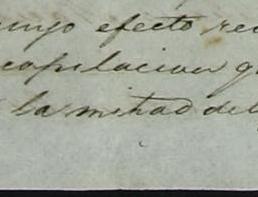 cuyo efecto rec
copilacion q
la mitad del